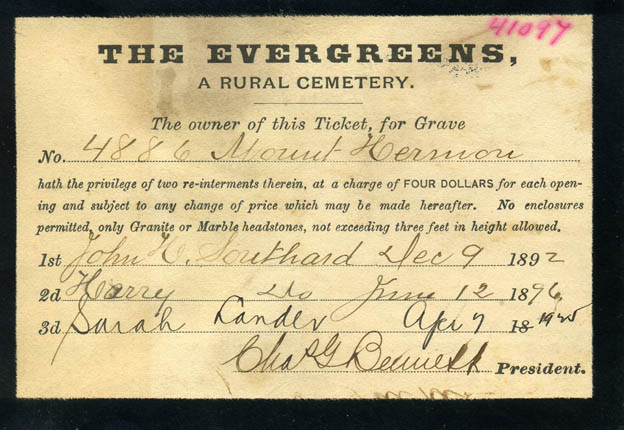 41097
THE EVERGREENS,
A RURAL CEMETERY.
The owner of this Ticket, for Grave
No. 4886 Mount Hermon
hath the privilege of two re-interments therein, at a charge of FOUR DOLLARS for each open-
ing and subject to any change of price which may be made hereafter. No enclosures
permitted, only Granite or Marble headstones, not exceeding three feet in height allowed.
1st John H. Southard Dec 9 1892
2d Harry Do June 12 1896
3d Sarah Lander Apr 7 18 1925
Chas G Bennett President.